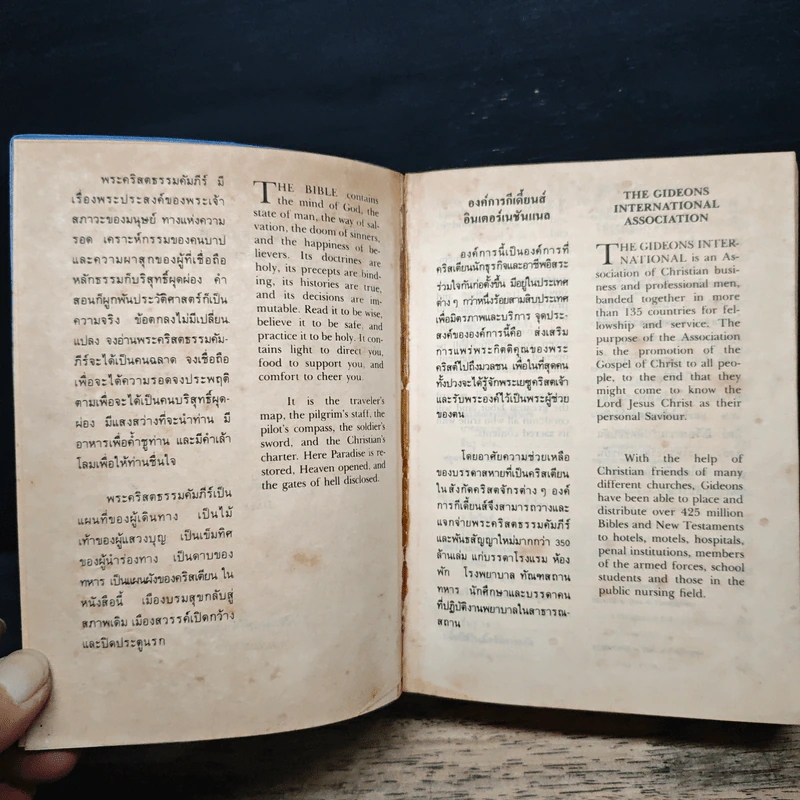 พระคริสตธรรมคัมภีร์ มี
เรื่องพระประสงค์ของพระเจ้า
สภาวะของมนุษย์ ทางแห่งความ
รอด เคราะห์กรรมของคนบาป
และความผาสุกของผู้ที่เชื่อถือ
หลักธรรมก็บริสุทธิ์ผุดผ่อง คำ
สอนก็ผูกพันประวัติศาสตร์ก็เป็น
ความจริง ข้อตกลงไม่มีเปลี่ยน
แปลง จงอ่านพระคริสตธรรมคัม-
ภีร์จะได้เป็นคนฉลาด จงเชื่อถือ
เพื่อจะได้ความรอดจงประพฤติ
ตามเพื่อจะได้เป็นคนบริสุทธิ์ผุด-
ผ่อง มีแสงสว่างที่จะนำท่าน มี
อาหารเพื่อค้ำชูท่าน และมีคำเล้า
โลมเพื่อให้ท่านชื่นใจ
พระคริสตธรรมคัมภีร์เป็น
แผนที่ของผู้เดินทาง เป็นไม้
เท้าของผู้แสวงบุญ เป็นเข็มทิศ
ของผู้นำร่องทาง เป็นดาบของ
ทหาร เป็นแผนผังของคริสเตียน ใน
หนังสือนี้ เมืองบรมสุขกลับสู่
สภาพเดิม เมืองสวรรค์เปิดกว้าง
และปิดประตูนรก
THE BIBLE contains
the mind of God, the
state of man, the way of sal-
vation, the doom of sinners,
and the happiness of be-
lievers. Its doctrines are
holy, its precepts are bind-
ing, its histories are true,
and its decisions are im-
mutable. Read it to be wise,
believe it to be safe, and
practice it to be holy. It con-
tains light to direct you,
food to support you, and
comfort to cheer you.
It is the traveler's
map, the pilgrim's staff, the
pilot's compass, the soldier's
sword, and the Christian's
charter. Here Paradise is re-
stored, Heaven opened, and
the gates of hell disclosed.
องค์การกีเดี้ยนส์
อินเตอร์เนชันแนล
องค์การนี้เป็นองค์การที่
คริสเตียนนักธุรกิจและอาชีพอิสระ
ร่วมใจกันก่อตั้งขึ้น มีอยู่ในประเทศ
ต่าง ๆ กว่าหนึ่งร้อยสามสิบประเทศ
เพื่อมิตรภาพและบริการ จุดประ-
สงค์ขององค์การนี้คือ ส่งเสริม
การแพร่พระกิตติคุณของพระ
คริสต์ไปถึงมวลชน เพื่อในที่สุดคน
ทั้งปวงจะได้รู้จักพระเยซูคริสตเจ้า
และรับพระองค์ไว้เป็นพระผู้ช่วย
ของตน
โดยอาศัยความช่วยเหลือ
ของบรรดาสหายที่เป็นคริสเตียน
ในสังกัดคริสตจักรต่าง ๆ องค์
การกีเดี้ยนส์จึงสามารถวางและ
แจกจ่ายพระคริสตธรรมคัมภีร์
และพันธสัญญาใหม่มากกว่า 350
ล้านเล่ม แก่บรรดาโรงแรม ห้อง
พัก โรงพยาบาล ทัณฑสถาน
ทหาร นักศึกษาและบรรดาคน
ที่ปฏิบัติงานพยาบาลในสาธารณ-
สถาน
THE GIDEONS
INTERNATIONAL
ASSOCIATION
THE GIDEONS INTER-
NATIONAL is an As-
sociation of Christian busi-
ness and professional men,
banded together in more
than 135 countries for fel-
lowship and service. The
purpose of the Association
is the promotion of the
Gospel of Christ to all peo-
ple, to the end that they
might come to know the
Lord Jesus Christ as their
personal Saviour.
With the help of
Christian friends of many
different churches, Gideons
have been able to place and
distribute over 425 million
Bibles and New Testaments
to hotels, motels, hospitals,
penal institutions, members
of the armed forces, school
students and those in the
public nursing field.